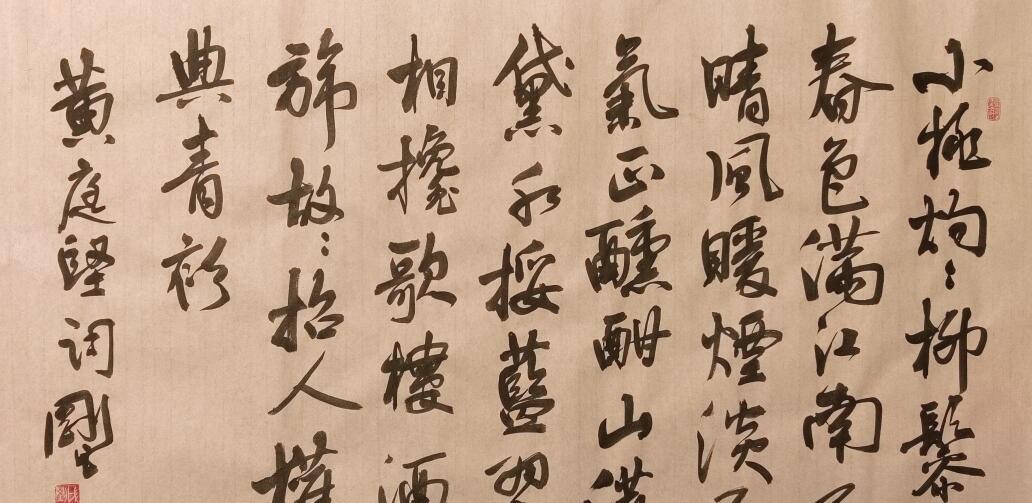 小桃灼灼柳鬖
春色满江南
晴風暖煙淡
氣正醺酣山
黛水挼藍
相攙歌樓酒
旆故故招人
典青衫
黄庭堅词